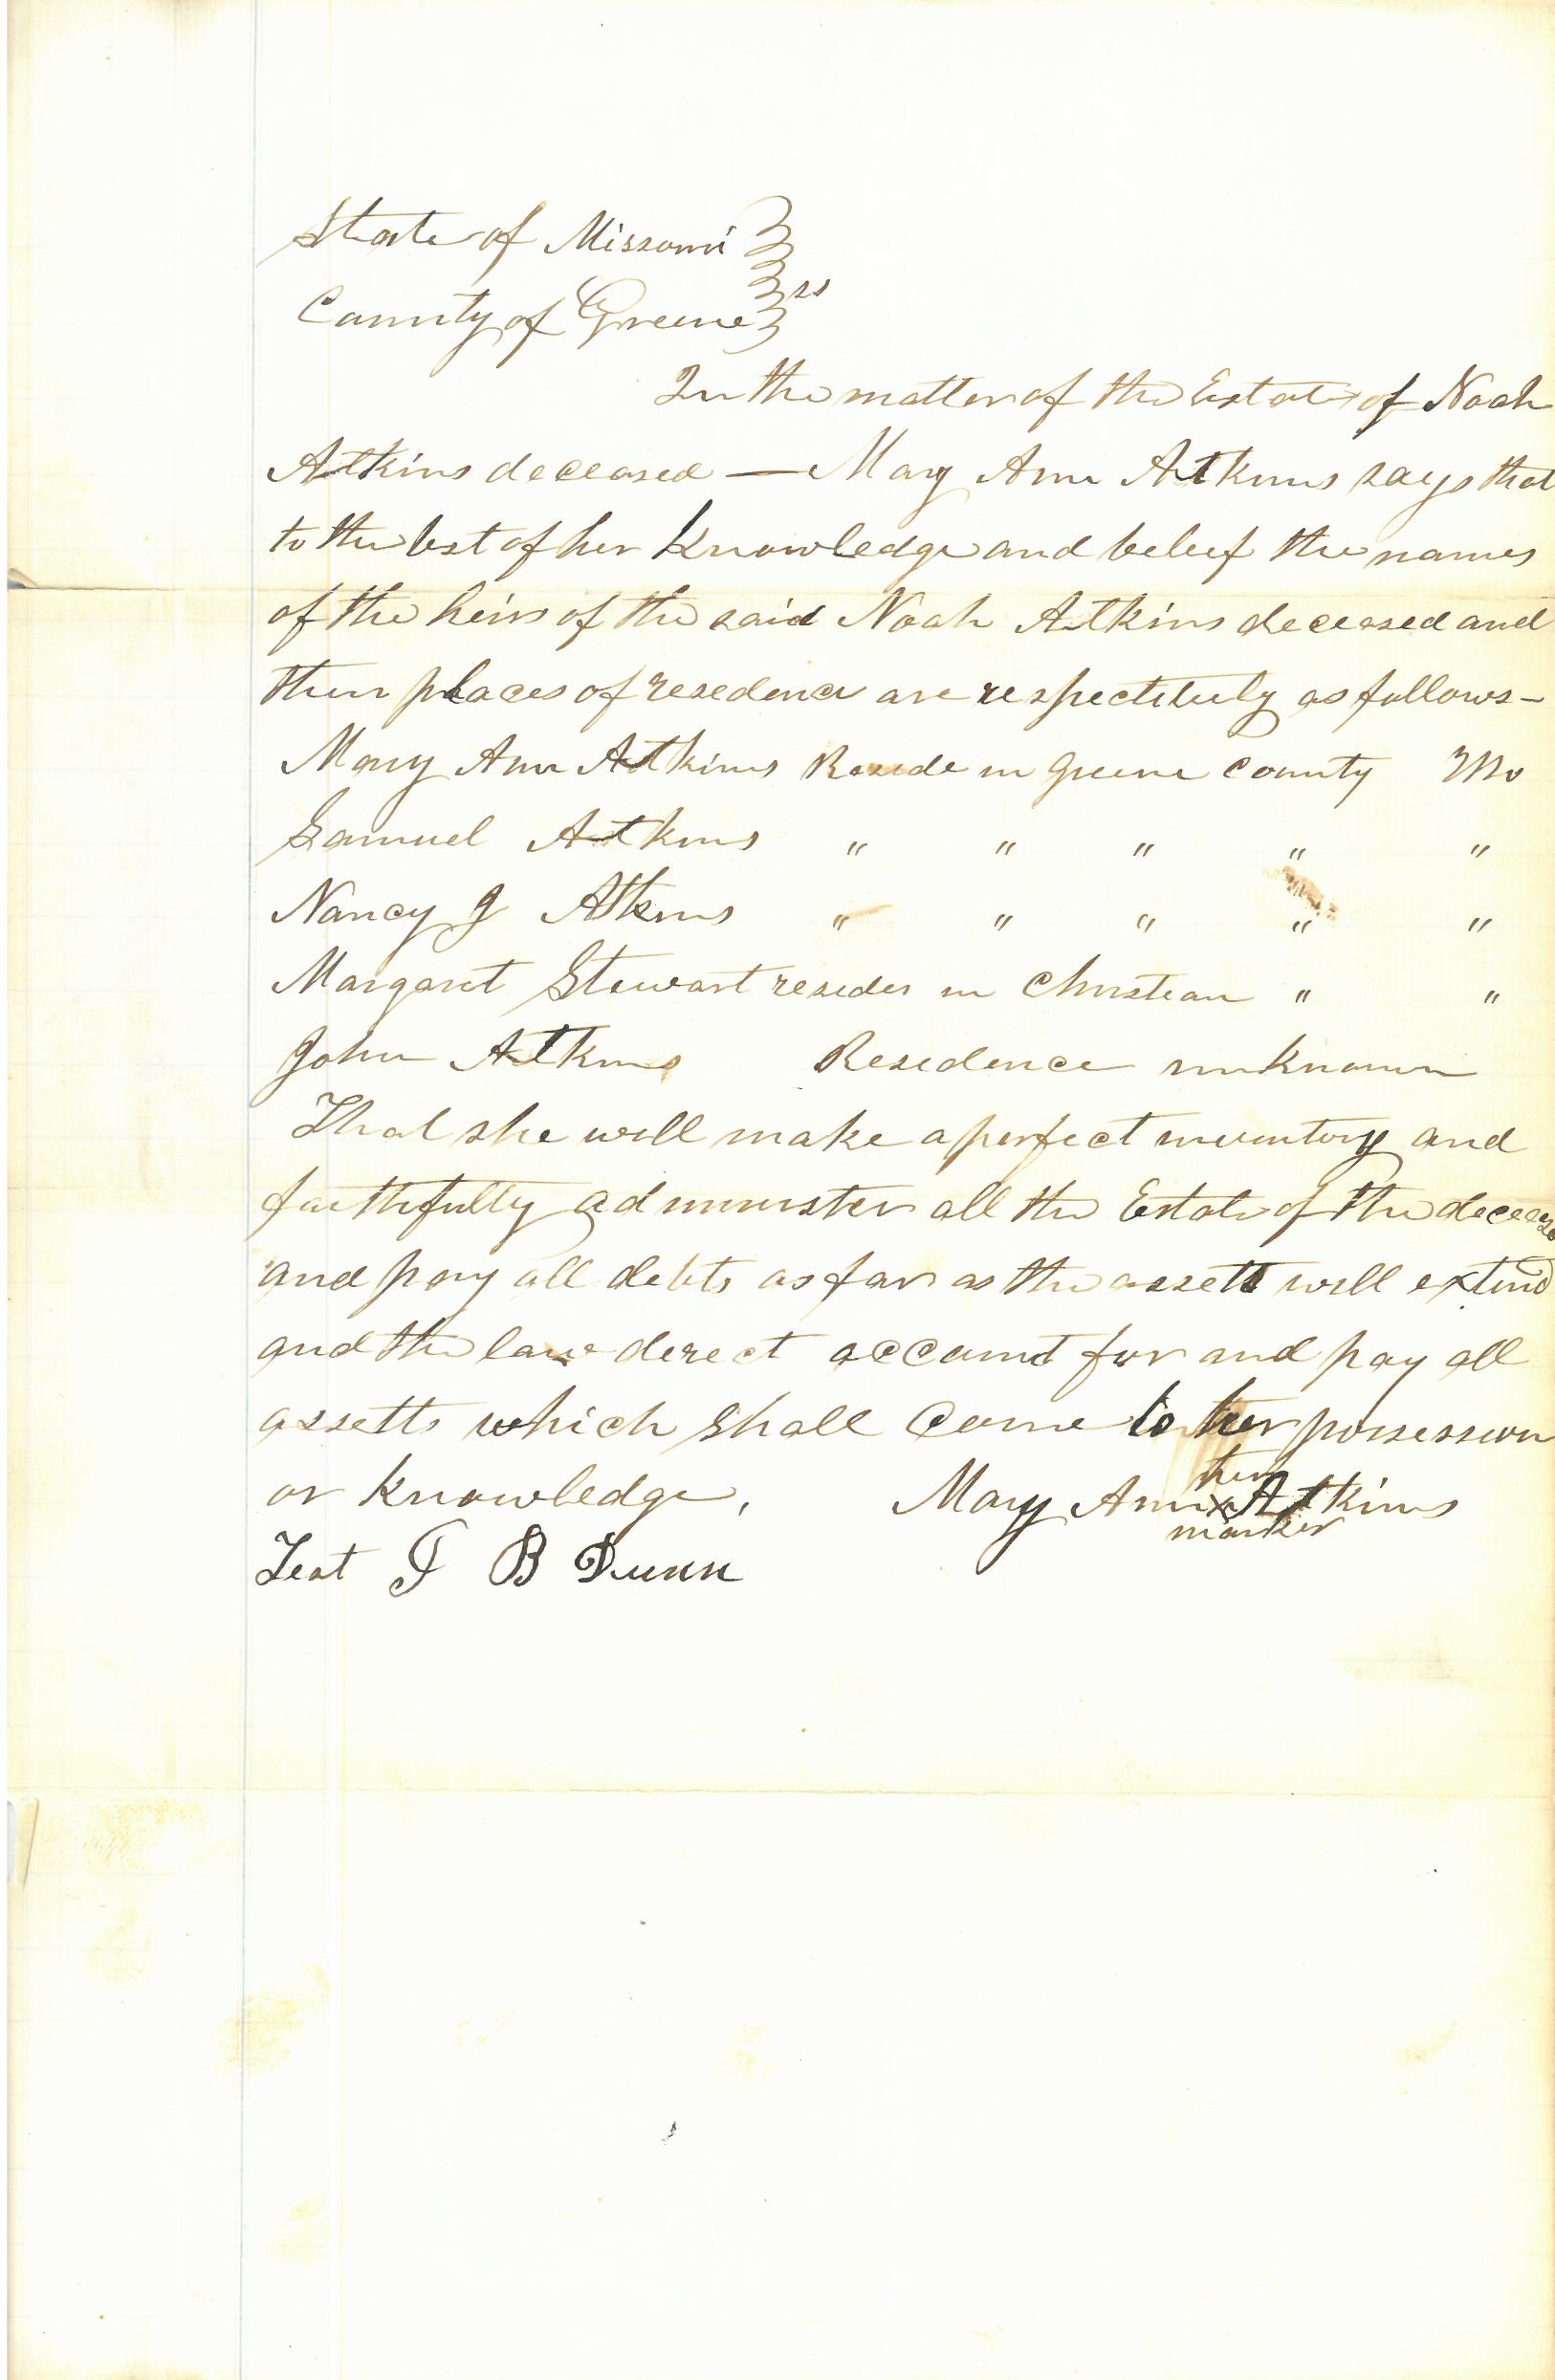 State of Missouri
ss
County of Greene
In the matter of the Estate of Noah
Atkins deceased — Mary Ann Atkins says that
to the best of her Knowledge and beleef the names
of the heirs of the said Noah Atkins deceased and
their places of resedence are respectively as follows-
Mary Ann Atkins Reside in Greene County Mo
Samuel Atkins " " " " "
Nancy J Atkins " " " " "
Margaret Stewart resedes in Christean " "
John Atkins Resedence unknown
That she will make a perfect inventory and
faithfully administer all the Estate of the deceased
and pay all debts as far as the assetts will extend
and the law derect account for and pay all
assetts which shall Come to her possession
or Knowledge, Mary Ann x Atkins
her
marker
Test J B Dunn